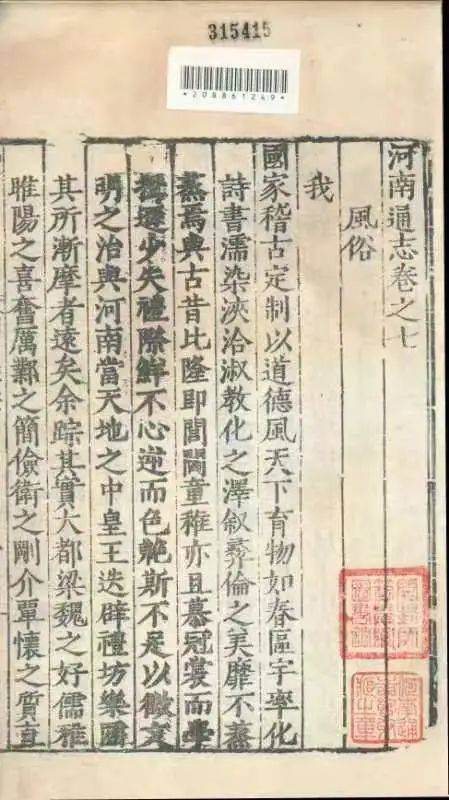 315415
*208861249*
河南通志卷之七
風俗
我
國家稽古定制以道德風天下育物如春區宇率化
詩書濡染浹洽淑教化之澤叙彞倫之美靡不蒸
蒸焉與古昔比隆即閭閻童稚亦且慕冠裳而學
遜少失禮際鮮不心逆而色艴斯不足以徵文
明之治與河南當天地之中皇王迭辟禮坊樂
其所漸摩者遠矣余踪其實大都梁魏之好儒雅
睢陽之喜奮厲鄴之簡儉衛之剛介覃懷之質直